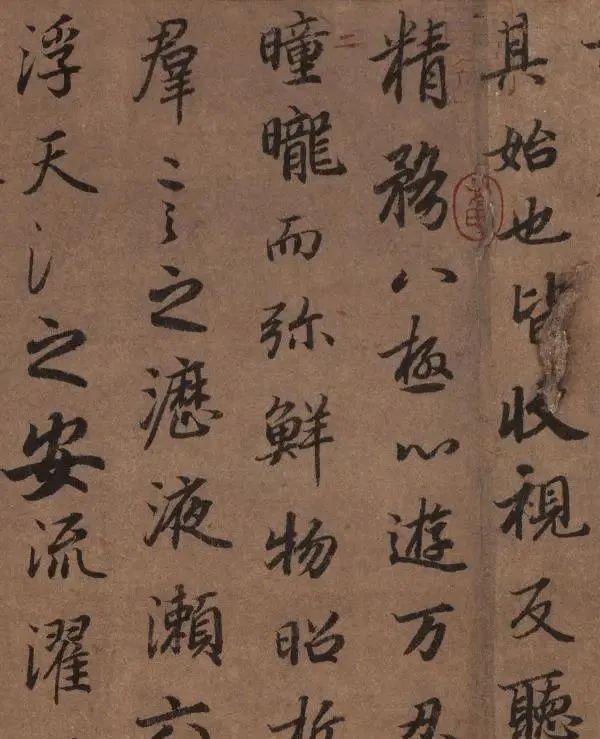 其始也皆收視反聽
精務八極心遊万
曈曨而弥鮮物昭
羣言之瀝液瀨六
浮天氵之安流濯
二